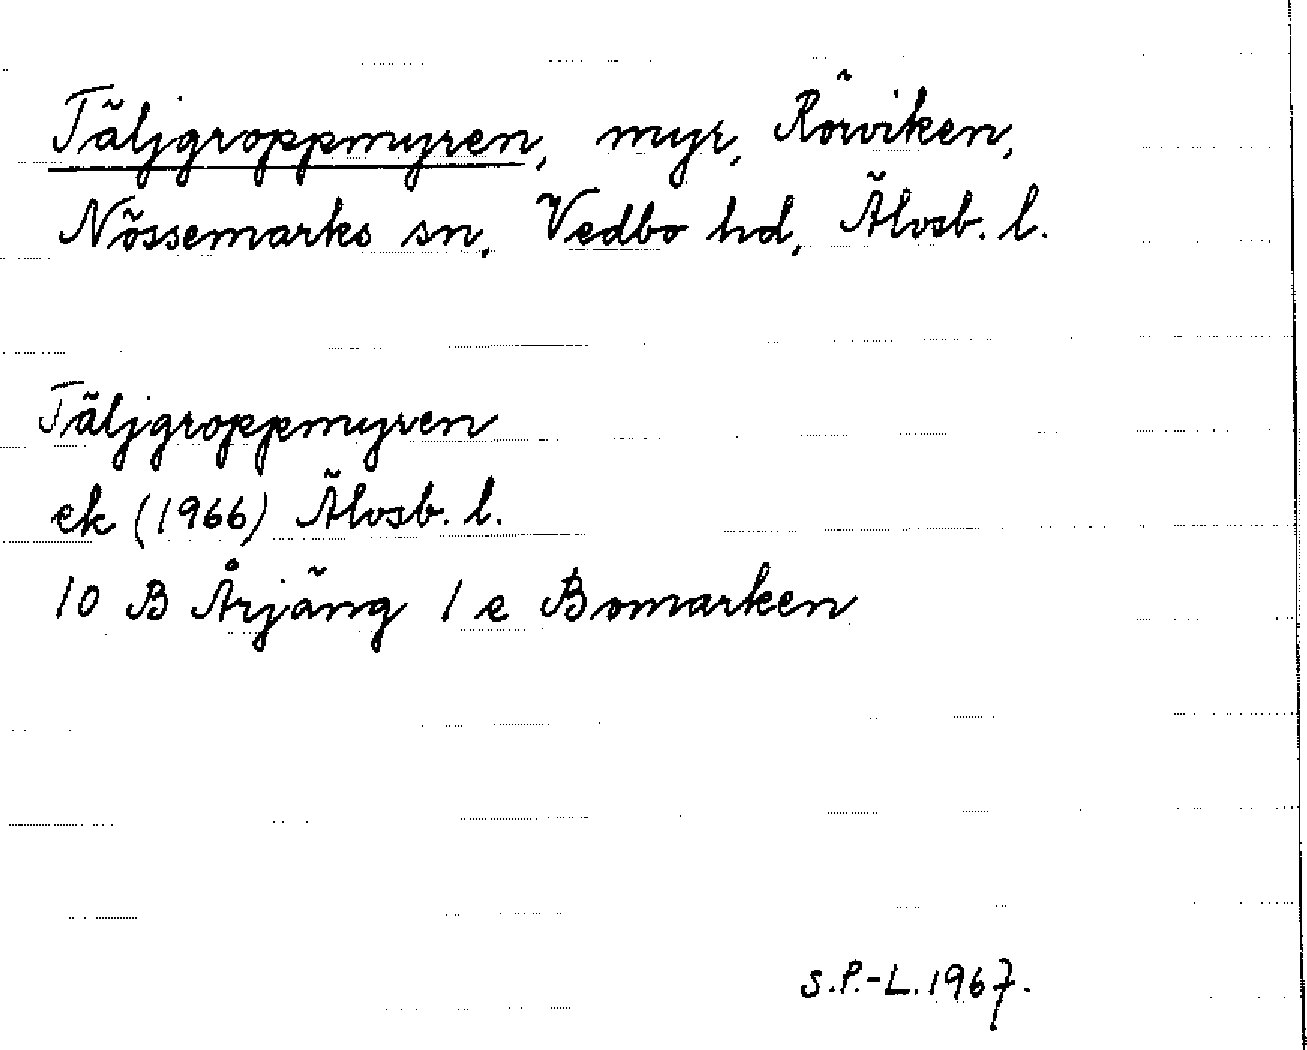 Täljgroppmyren, myr, Rörviken,
Nössemarks sn, Vedbo hd, Älvsb. l.
Täljgroppmyren
ek (1966) Älvsb. l.
10 B Årjäng 1 e Bomarken
S.P.-L. 1967.